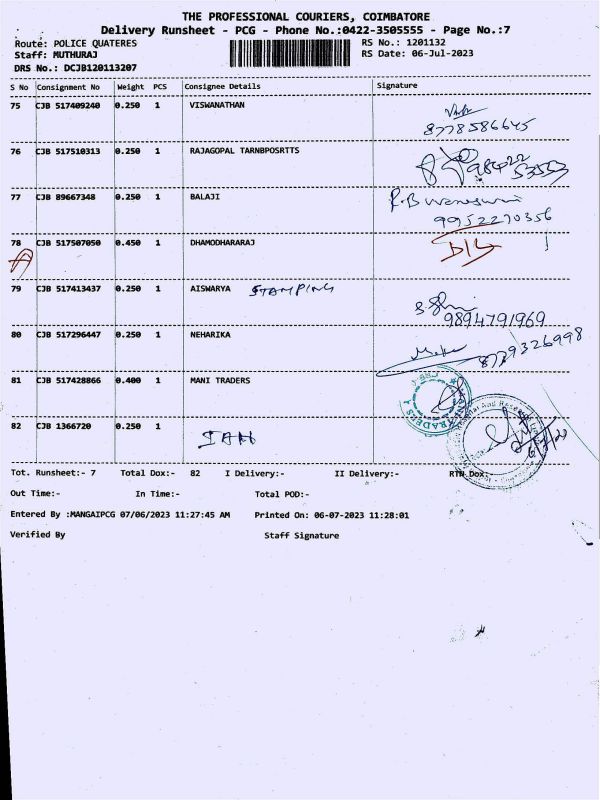 THE PROFESSIONAL COURIERS, COIMBATORE
Delivery Runsheet - PCG - Phone No.:0422-3505555 - Page No.:7
Route: POLICE QUATERES RS No.: 1201132
Staff: MUTHURAJ RS Date: 06-Jul-2023
DRS No.: DCJB120113207
S No Consignment No Weight PCS Consignee Details Signature
75 CJB 517409240 0.250 1 VISWANATHAN
8778586645
76 CJB 517510313 0.250 1 RAJAGOPAL TARNBPOSRTTS
98422
53553
77 CJB 89667348 0.250 1 BALAJI
9952270356
78 CJB 517507050 0.450 1 DHAMODHARARAJ
D/L
79 CJB 517413437 0.250 1 AISWARYA STAMPING
9894791969
80 CJB 517296447 0.250 1 NEHARIKA
8779326998
81 CJB 517428866 0.400 1 MANI TRADERS
MANI TRADERS
82 CJB 1366720 0.250 1
IAH
Tot. Runsheet:- 7 Total Dox:- 82 I Delivery:- II Delivery:- RTN Dox:-
Out Time:- In Time:- Total POD:-
Entered By :MANGAIPCG 07/06/2023 11:27:45 AM Printed On: 06-07-2023 11:28:01
Verified By Staff Signature